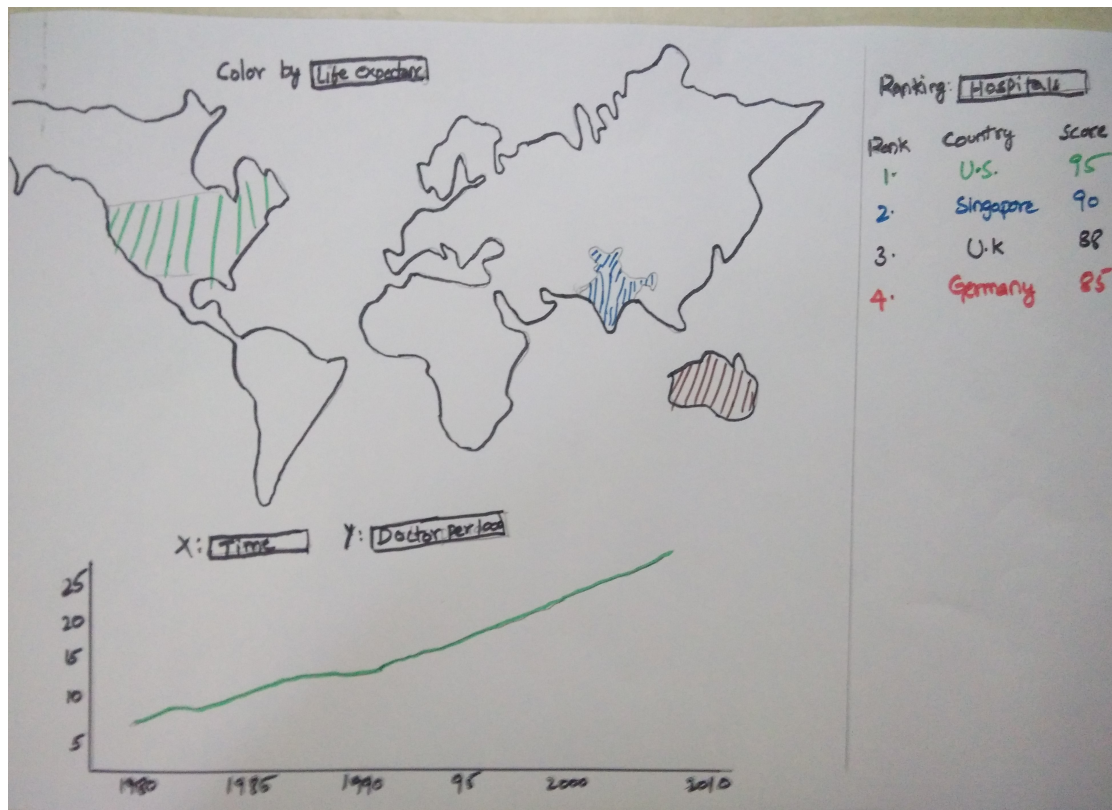 Color by Life expectanc
Ranking: Hospitals
Rank Country Score
1. U.S. 95
2. Singapore 90
3. U.K 88
4. Germany 85
X: Time Y: Doctor per 1000
25
20
15
10
5
1980 1985 1990 95 2000 2010